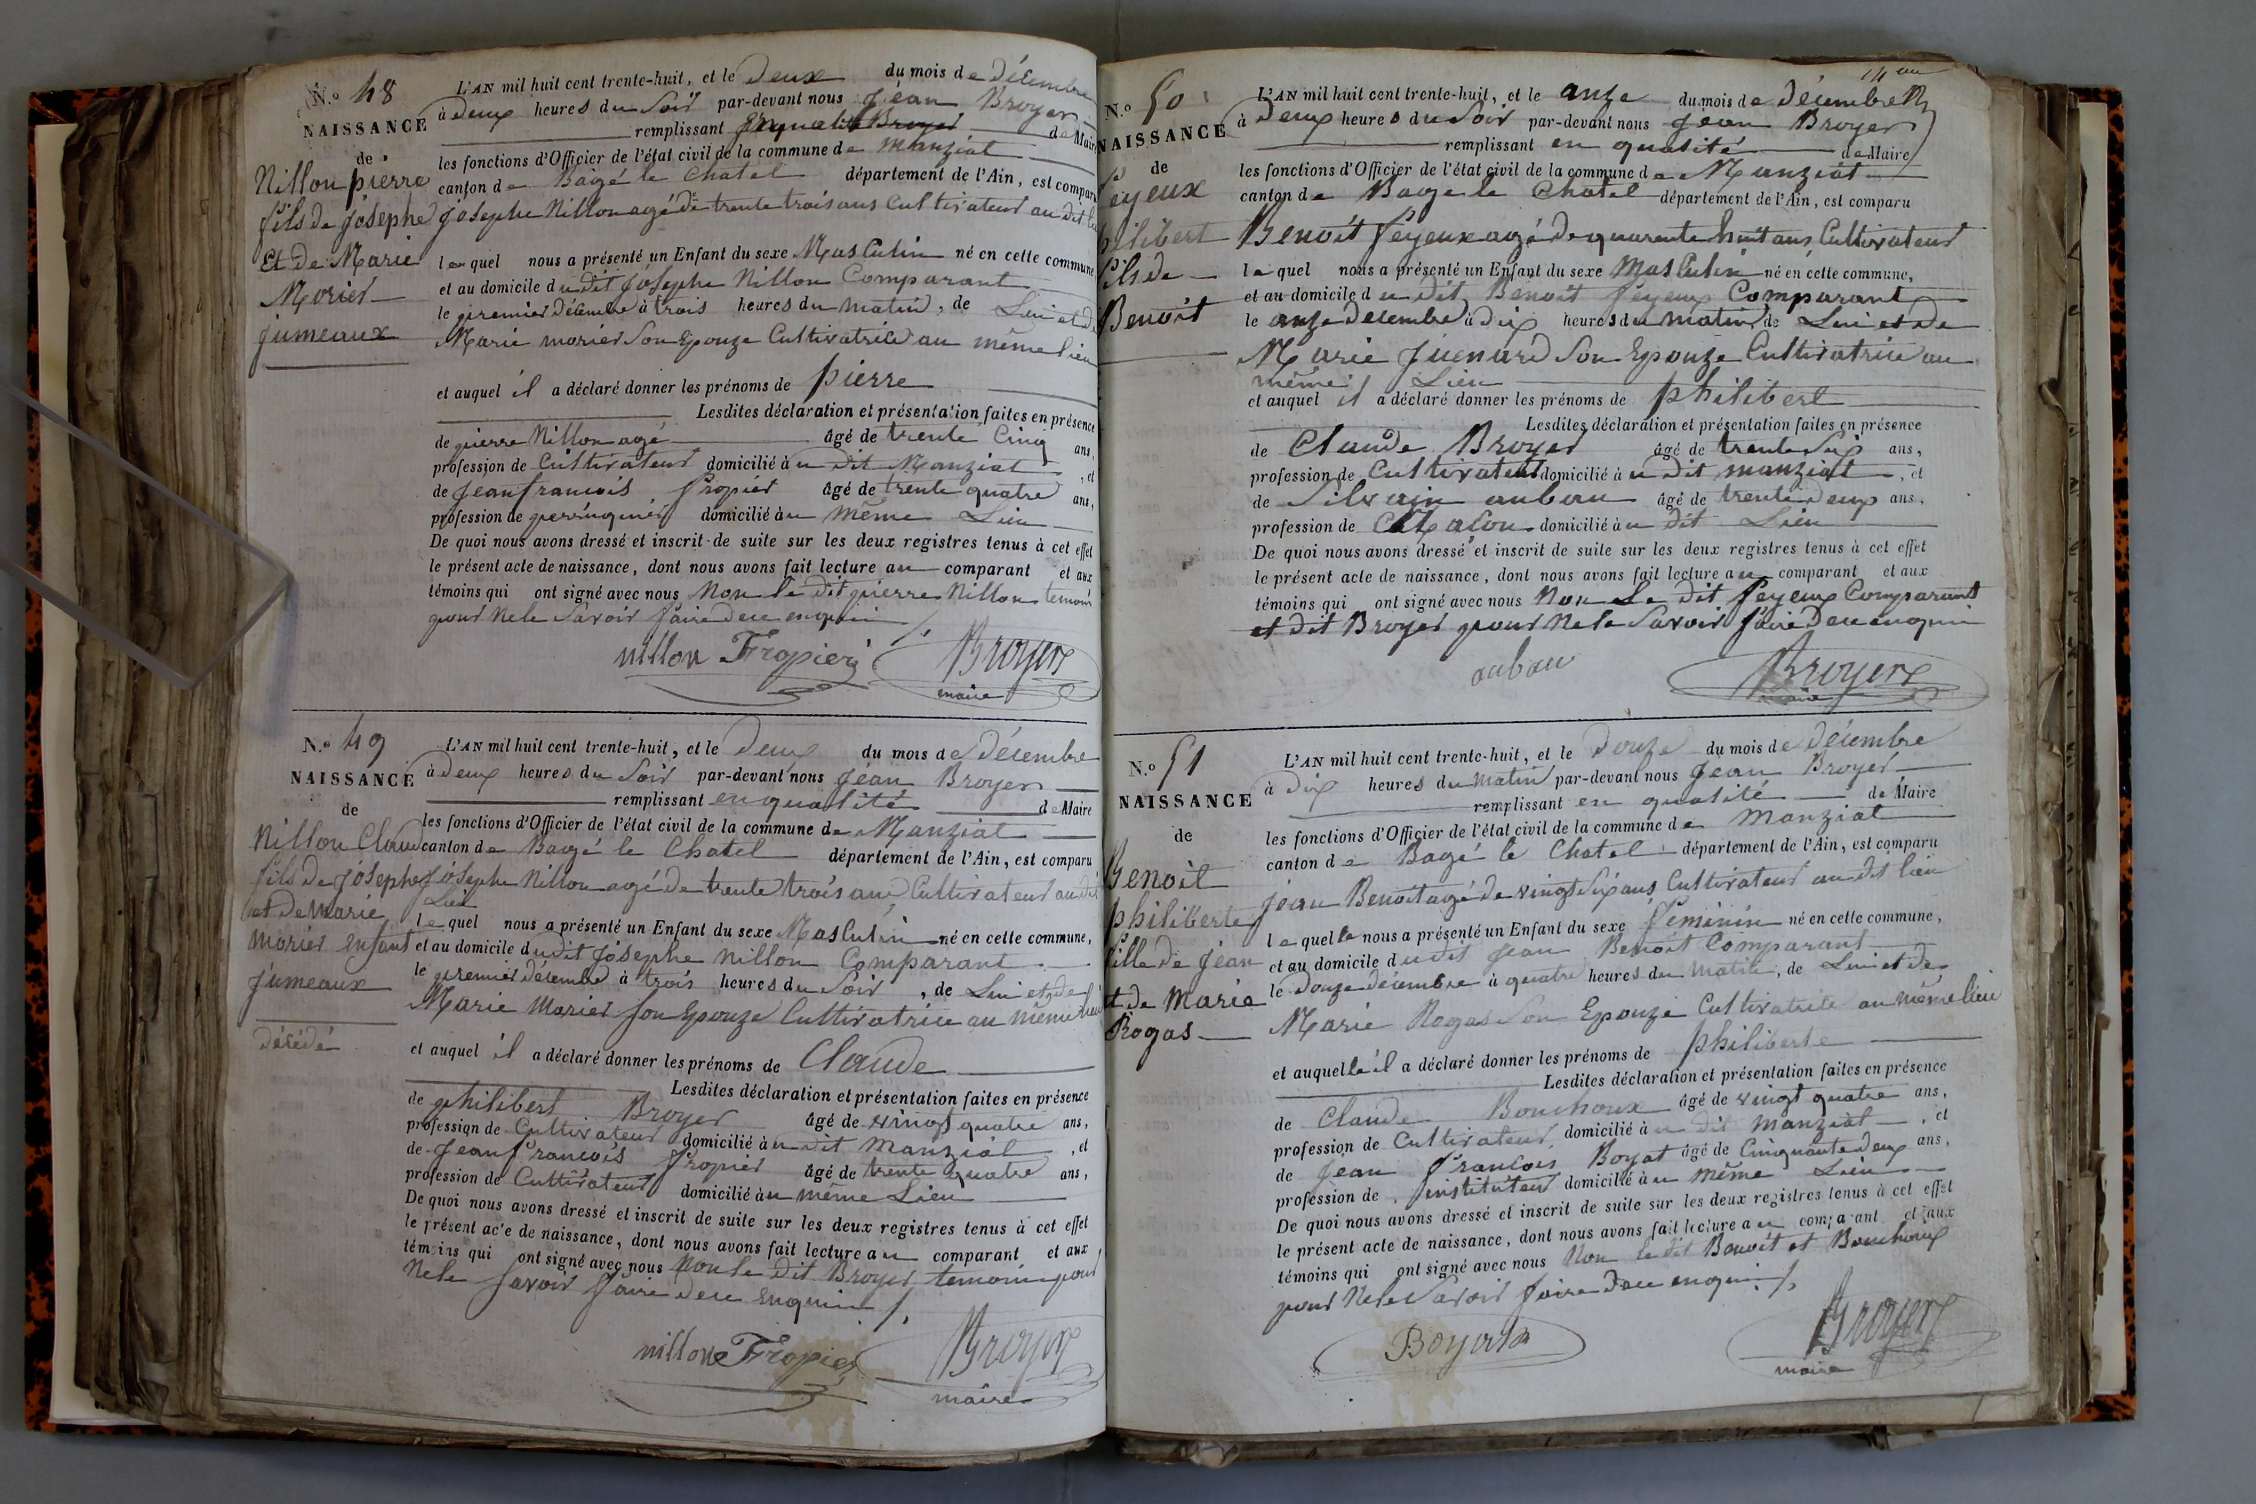 N.o 48
NAISSANCE
de
Nillon pierre
fils de Josephe
et de Marie
Morier
jumeaux
L'AN mil huit cent trente-huit, et le Deux du mois de Décembre
à Deux heures du Soir par-devant nous Jean Broyer
remplissant en qualité de Maire
les fonctions d'Officier de l'état civil de la commune de Manziat
canton de Bagé le Chatel département de l'Ain, est comparu
Josephe Nillon agé de trente trois ans Cultivateur au dit
lequel nous a présenté un Enfant du sexe Masculin né en cette commune
et au domicile du dit Josephe Nillon Comparant
le premier Décembre à trois heures du matin, de Lui et de
Marie morier Son Epouze Cultivatrice au même lieu
et auquel il a déclaré donner les prénoms de pierre
Lesdites déclaration et présentation faites en présence
de pierre Nillon agé âgé de trente Cinq ans,
profession de Cultivateur domicilié à u dit Manziat, et
de Jean francois fropier âgé de trente quatre ans,
profession de domicilié à u même Lieu
De quoi nous avons dressé et inscrit de suite sur les deux registres tenus à cet effet
le présent acte de naissance, dont nous avons fait lecture au comparant et aux
témoins qui ont signé avec nous Non le dit pierre Nillon temoin
pour Ne le Savoir faire de ce enquin
nillon Fropier Broyer
maire
N.o 49
NAISSANCE
de
Nillon Claude
fils de Josephe
et de Marie
morier enfant
jumeaux
Décédé
L'AN mil huit cent trente-huit, et le Deux du mois de Décembre
à Deux heures du Soir par-devant nous Jean Broyer
remplissant en qualité de Maire
les fonctions d'Officier de l'état civil de la commune de Manziat
canton de Bagé le Chatel département de l'Ain, est comparu
Josephe Nillon agé de trente trois ans Cultivateur au dit
Lieu
lequel nous a présenté un Enfant du sexe Masculin né en cette commune,
et au domicile du dit Josephe Nillon Comparant
le premier décembre à trois heures du Soir, de Lui et de
Marie Morier Son Epouze Cultivatrice au même lieu
et auquel il a déclaré donner les prénoms de Claude
Lesdites déclaration et présentation faites en présence
de philibert Broyer âgé de vingt quatre ans,
profession de Cultivateur domicilié à u dit Manziat, et
de Jean francois fropier âgé de trente quatre ans,
profession de Cultivateur domicilié à u même Lieu
De quoi nous avons dressé et inscrit de suite sur les deux registres tenus à cet effet
le présent acte de naissance, dont nous avons fait lecture au comparant et aux
témoins qui ont signé avec nous Non le dit Broyer temoin pour
Ne le Savoir faire de ce enquin
nillon Fropier Broyer
maire
N.o 50
NAISSANCE
de
feyeux
philibert
fils de
Benoit
L'AN mil huit cent trente-huit, et le onze du mois de décembre
à Deux heures du Soir par-devant nous Jean Broyer
remplissant en qualité de Maire
les fonctions d'Officier de l'état civil de la commune de Manziat
canton de Bage le Chatel département de l'Ain, est comparu
Benoit feyeux agé de quarente huit ans Cultivateur
lequel nous a présenté un Enfant du sexe Masculin né en cette commune,
et au domicile du dit Benoit feyeux Comparant
le onze décembre à dix heures du matin de Lui et de
Marie Juenard Son Epouze Cultivatrice au
même Lieu
et auquel il a déclaré donner les prénoms de philibert
Lesdites déclaration et présentation faites en présence
de Claude Broyer âgé de trente Six ans,
profession de Cultivateur domicilié à u dit manziat, et
de Silvain aubau âgé de trente deux ans,
profession de Maçon domicilié à u dit Lieu
De quoi nous avons dressé et inscrit de suite sur les deux registres tenus à cet effet
le présent acte de naissance, dont nous avons fait lecture au comparant et aux
témoins qui ont signé avec nous Non Le dit feyeux Comparant
et dit Broyer pour Ne le Savoir faire De ce enquin
aubau Broyer
maire
N.o 51
NAISSANCE
de
Benoit
philiberte
fille de Jean
et de Marie
Rogas
L'AN mil huit cent trente-huit, et le Douze du mois de Décembre
à Dix heures du Matin par-devant nous Jean Broyer
remplissant en qualité de Maire
les fonctions d'Officier de l'état civil de la commune de Manziat
canton de Bagé le Chatel département de l'Ain, est comparu
Jean Benoit agé de vingt Six ans Cultivateur au dit lieu
lequelle nous a présenté un Enfant du sexe féminin né en cette commune,
et au domicile du dit Jean Benoit Comparant
le Douze décembre à quatre heures du Matin, de Lui et de
Marie Rogas Son Epouze Cultivatrice au même lieu
et auquelle il a déclaré donner les prénoms de philiberte
Lesdites déclaration et présentation faites en présence
de Claude Bouchoux âgé de vingt quatre ans,
profession de Cultivateur domicilié à u dit Manziat, et
de Jean francois Boyat âgé de Cinquante deux ans,
profession de instituteur domicilié à u même Lieu
De quoi nous avons dressé et inscrit de suite sur les deux registres tenus à cet effet
le présent acte de naissance, dont nous avons fait lecture au comparant et aux
témoins qui ont signé avec nous Non le dit Benoit et Bouchoux
pour Ne le Savoir faire De ce enquin
Boyat Broyer
maire